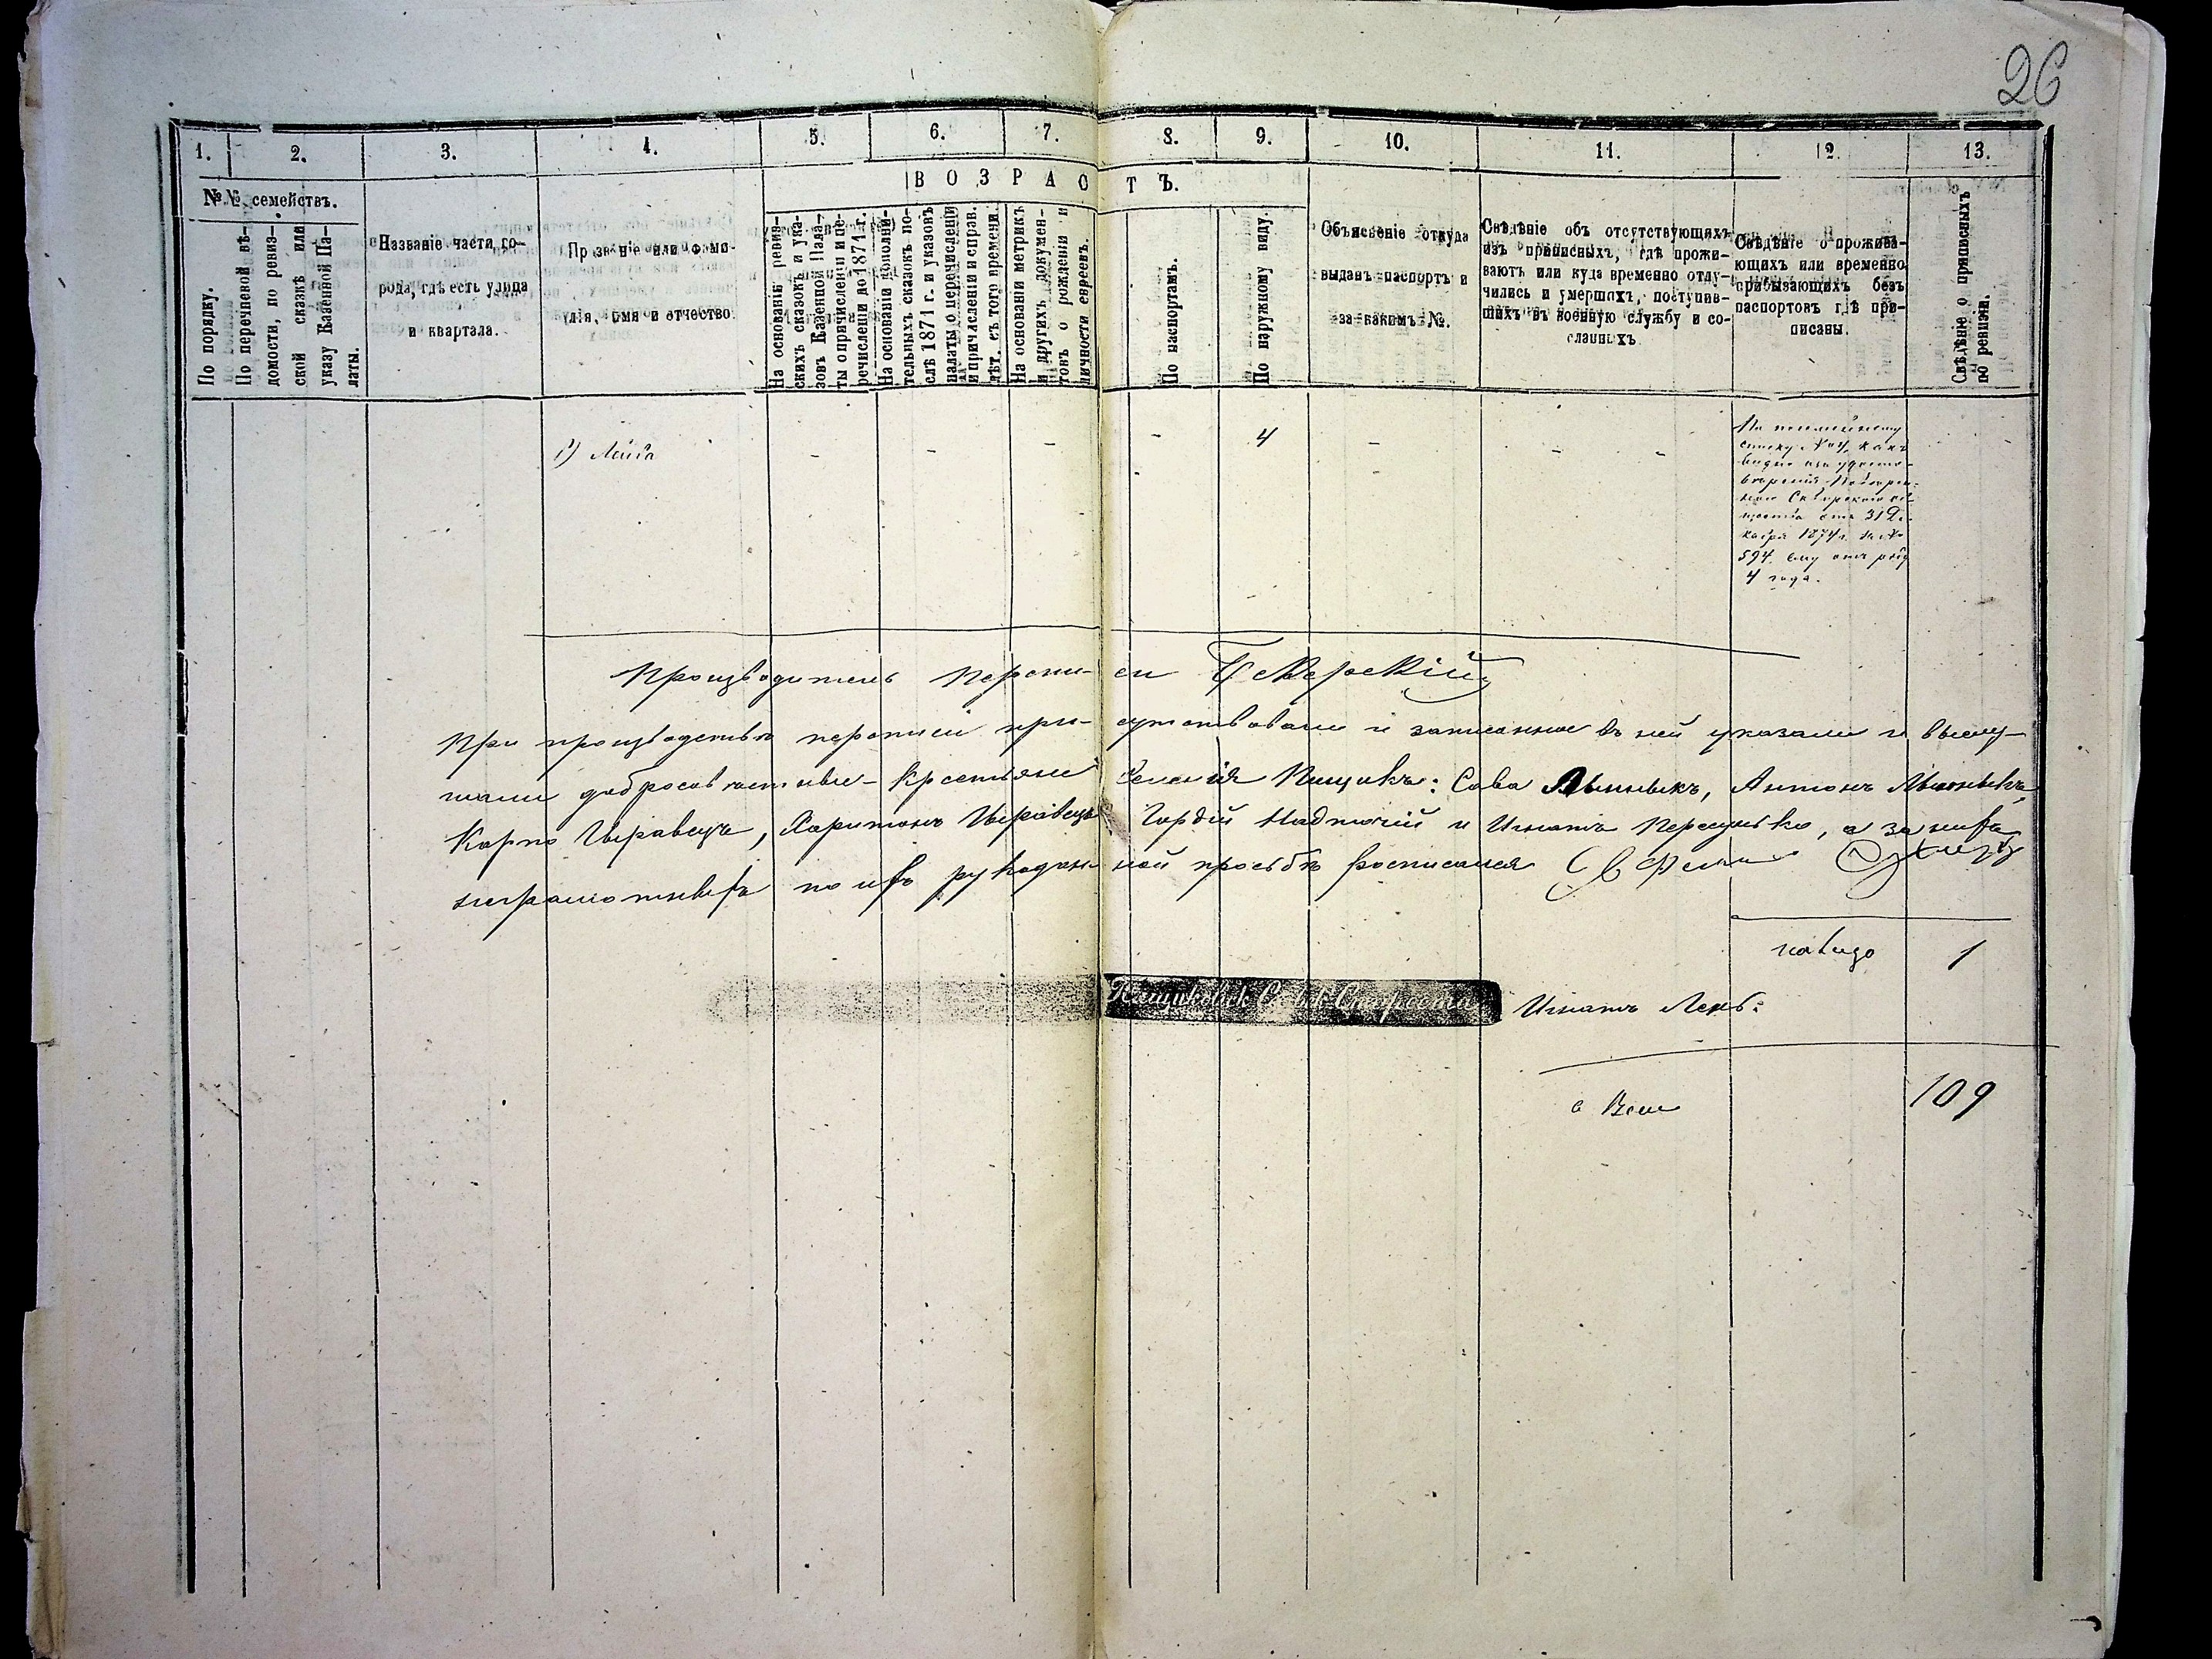 26
1. 2. 3. 4. 5. 6. 7. 8. 9. 10. 11. 12. 13.
ВОЗРАСТЪ.
№№ семействъ.
По порядку.
По перечневой вѣ-
домости, по ревиз-
ской сказкѣ или
указу Казенной Па-
латы.
Названіе части го-
рода, гдѣ есть улица
и квартала.
Прозваніе или фами-
лія, имя и отчество
На основаніи ревиз-
скихъ сказокъ и ука-
зовъ Казенной Пала-
ты о причисленіи и пе-
речисленіи до 1871 г.
На основаніи дополни-
тельныхъ сказокъ по-
слѣ 1871 г. и указовъ
палаты о перечисленіи
и причисленіи и справ.
лѣт. съ того времени.
На основаніи метрикъ
и другихъ докумен-
товъ о рожденіи и
личности евреевъ.
По паспортамъ.
По наружному виду.
Объясненіе откуда
выданъ паспортъ и
за какимъ №.
Свѣдѣніе объ отсутствующихъ
изъ приписныхъ, гдѣ прожи-
ваютъ или куда временно отлу-
чились и умершихъ, поступив-
шихъ въ военную службу и со-
сланныхъ
Свѣдѣніе о прожива-
ющихъ или временно
прибывающихъ безъ
паспортовъ гдѣ при-
писаны.
Свѣдѣніе о приписныхъ
по ревизіи.
- - - - 4 - - -
списку №4, какъ
видно изъ удосто-
вѣренія
Сквирскаго об-
щества отъ 31 Де-
кабря 1874 г. за №
594. ему отъ роду
4 года.
Производитель Переписи
При производствѣ переписи присутствовали и записанное въ ней указали и выслу-
шали добросовѣстные - Крестьяне Селенія Пищики: Сава Антонъ
Карпо Харитонъ Гордій Надточій и Игнатъ а за нихъ
неграмотныхъ по ихъ рукоданной просьбѣ росписался
1
Пищиковск Сельск Староста Игнатъ
а Всего 109